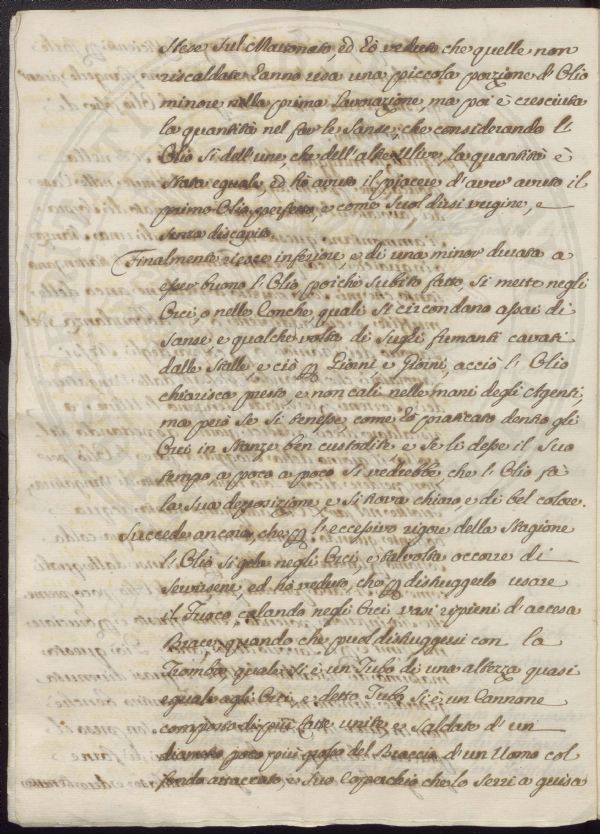 stese sul Mattonato, ed ho veduto che quelle non
riscaldate danno resa una piccola porzione d'Olio
minore nella prima lavorazione, ma poi è cresciuta
la quantità nel far le Sanse; che considerando l'
Olio sì dell'une, che dell'altre Ulive, la quantità è
stata eguale, ed hò avuto il piacere d'aver avuto il
primo Olio perfetto, e come suol dirsi vergine, e
senza discapito.
Finalmente riesce inferiore, e di una minor durata a
esser buono l'Olio poichè subito fatto, si mette negli
Orci, o nelle Conche, quali si circondano assai di
Sanse e qualche volta di Sughi fumanti cavati
dalle Stalle, e ciò Ꝑ Gioni e Gioni, acciò l'Olio
chiarisca presto, e non cali nelle mani degli Agenti,
ma però se si tenesse come ho praticato dentro gli
Orci in Stanze ben custodite e se li desse il suo
tempo, a poco a poco si vedrebbe, che l'Olio fà
la sua deposizione, e si trova chiaro, e di bel colore.
Succede ancora, che Ꝑ l'eccessivo rigore della Stagione
l'Olio si gela negli Orci, e talvolta occorre di
servirseni, ed ho veduto, che Ꝑ distruggerlo usare
il Fuoco, calando negli Orci, vasi ripieni d'accesa
Brace, quando che puol distruggersi con la
Tromba, quale si è un Tubo di una altezza quasi
eguale agli Orci, e detto Tubo si è un Cannone
composto di più Latte unite, e saldate d'un
diametro poco più grosso del Braccio d'un Uomo col
fondo attaccato, e suo Coperchio che lo serri a guisa